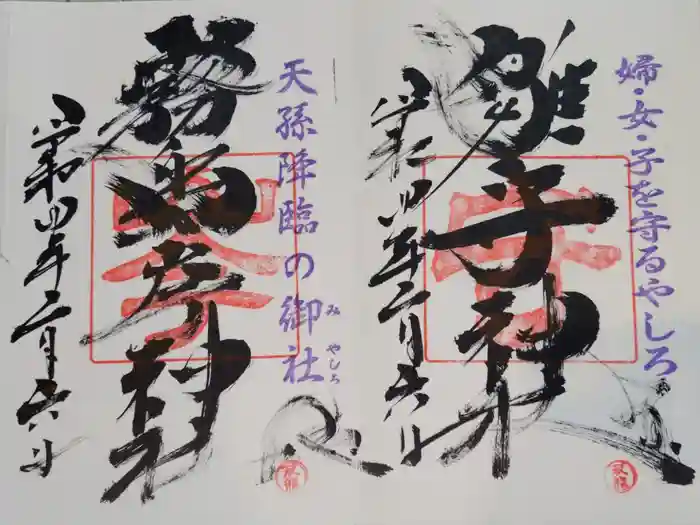 婦・女・子を守るやしろ
雛守神社
令和四年二月六日
天孫降臨の御社
みやしろ
霧島岑神社
令和四年二月六日